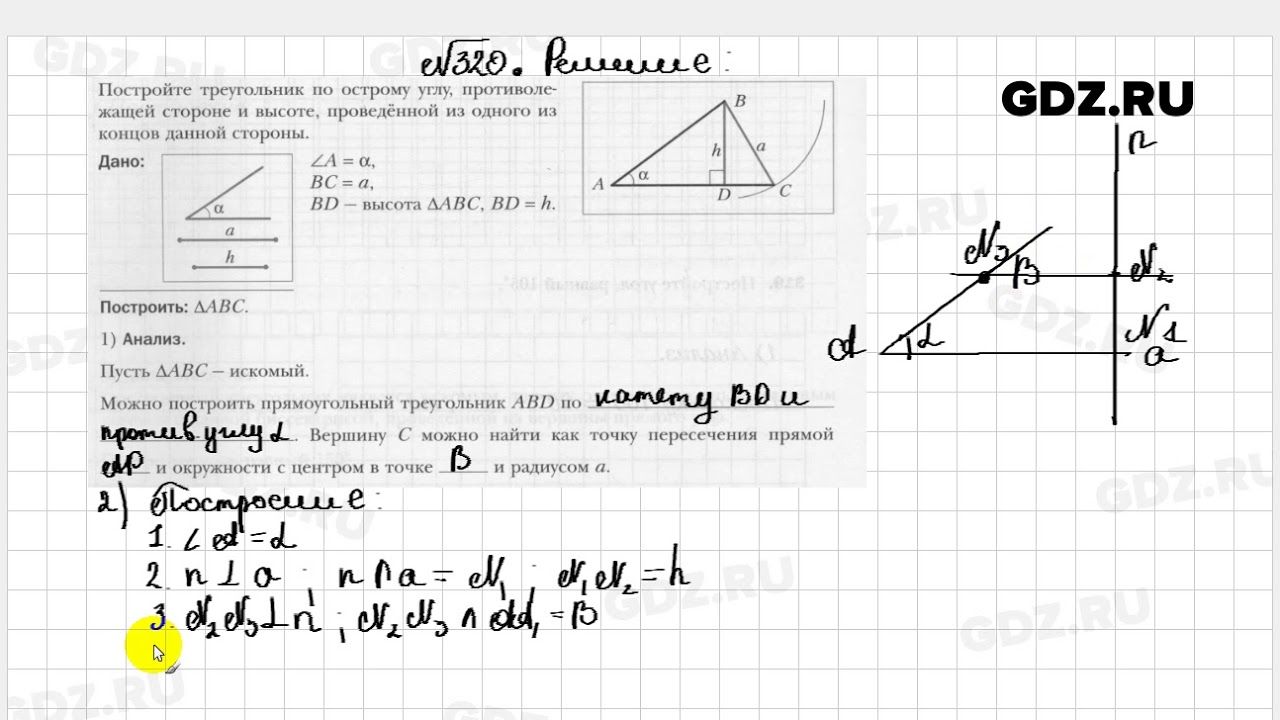 №320. Решение:
GDZ.RU
Постройте треугольник по острому углу, противоле-
жащей стороне и высоте, проведённой из одного из
концов данной стороны.
Дано:
∠A = α,
BC = a,
BD – высота ΔABC, BD = h.
α
a
h
B
h
a
A
α
D
C
Построить: ΔABC.
1) Анализ.
Пусть ΔABC – искомый.
Можно построить прямоугольный треугольник ABD по катету BD и
против углу α. Вершину C можно найти как точку пересечения прямой
AD и окружности с центром в точке B и радиусом a.
n
N₃
B
N₂
N₁
A
α
a
2) Построение:
1. ∠A = α
2. n ⊥ a ; n ∩ a = N₁ ; N₁N₂ = h
3. N₂N₃ ⊥ n ; N₂N₃ ∩ AA₁ = B